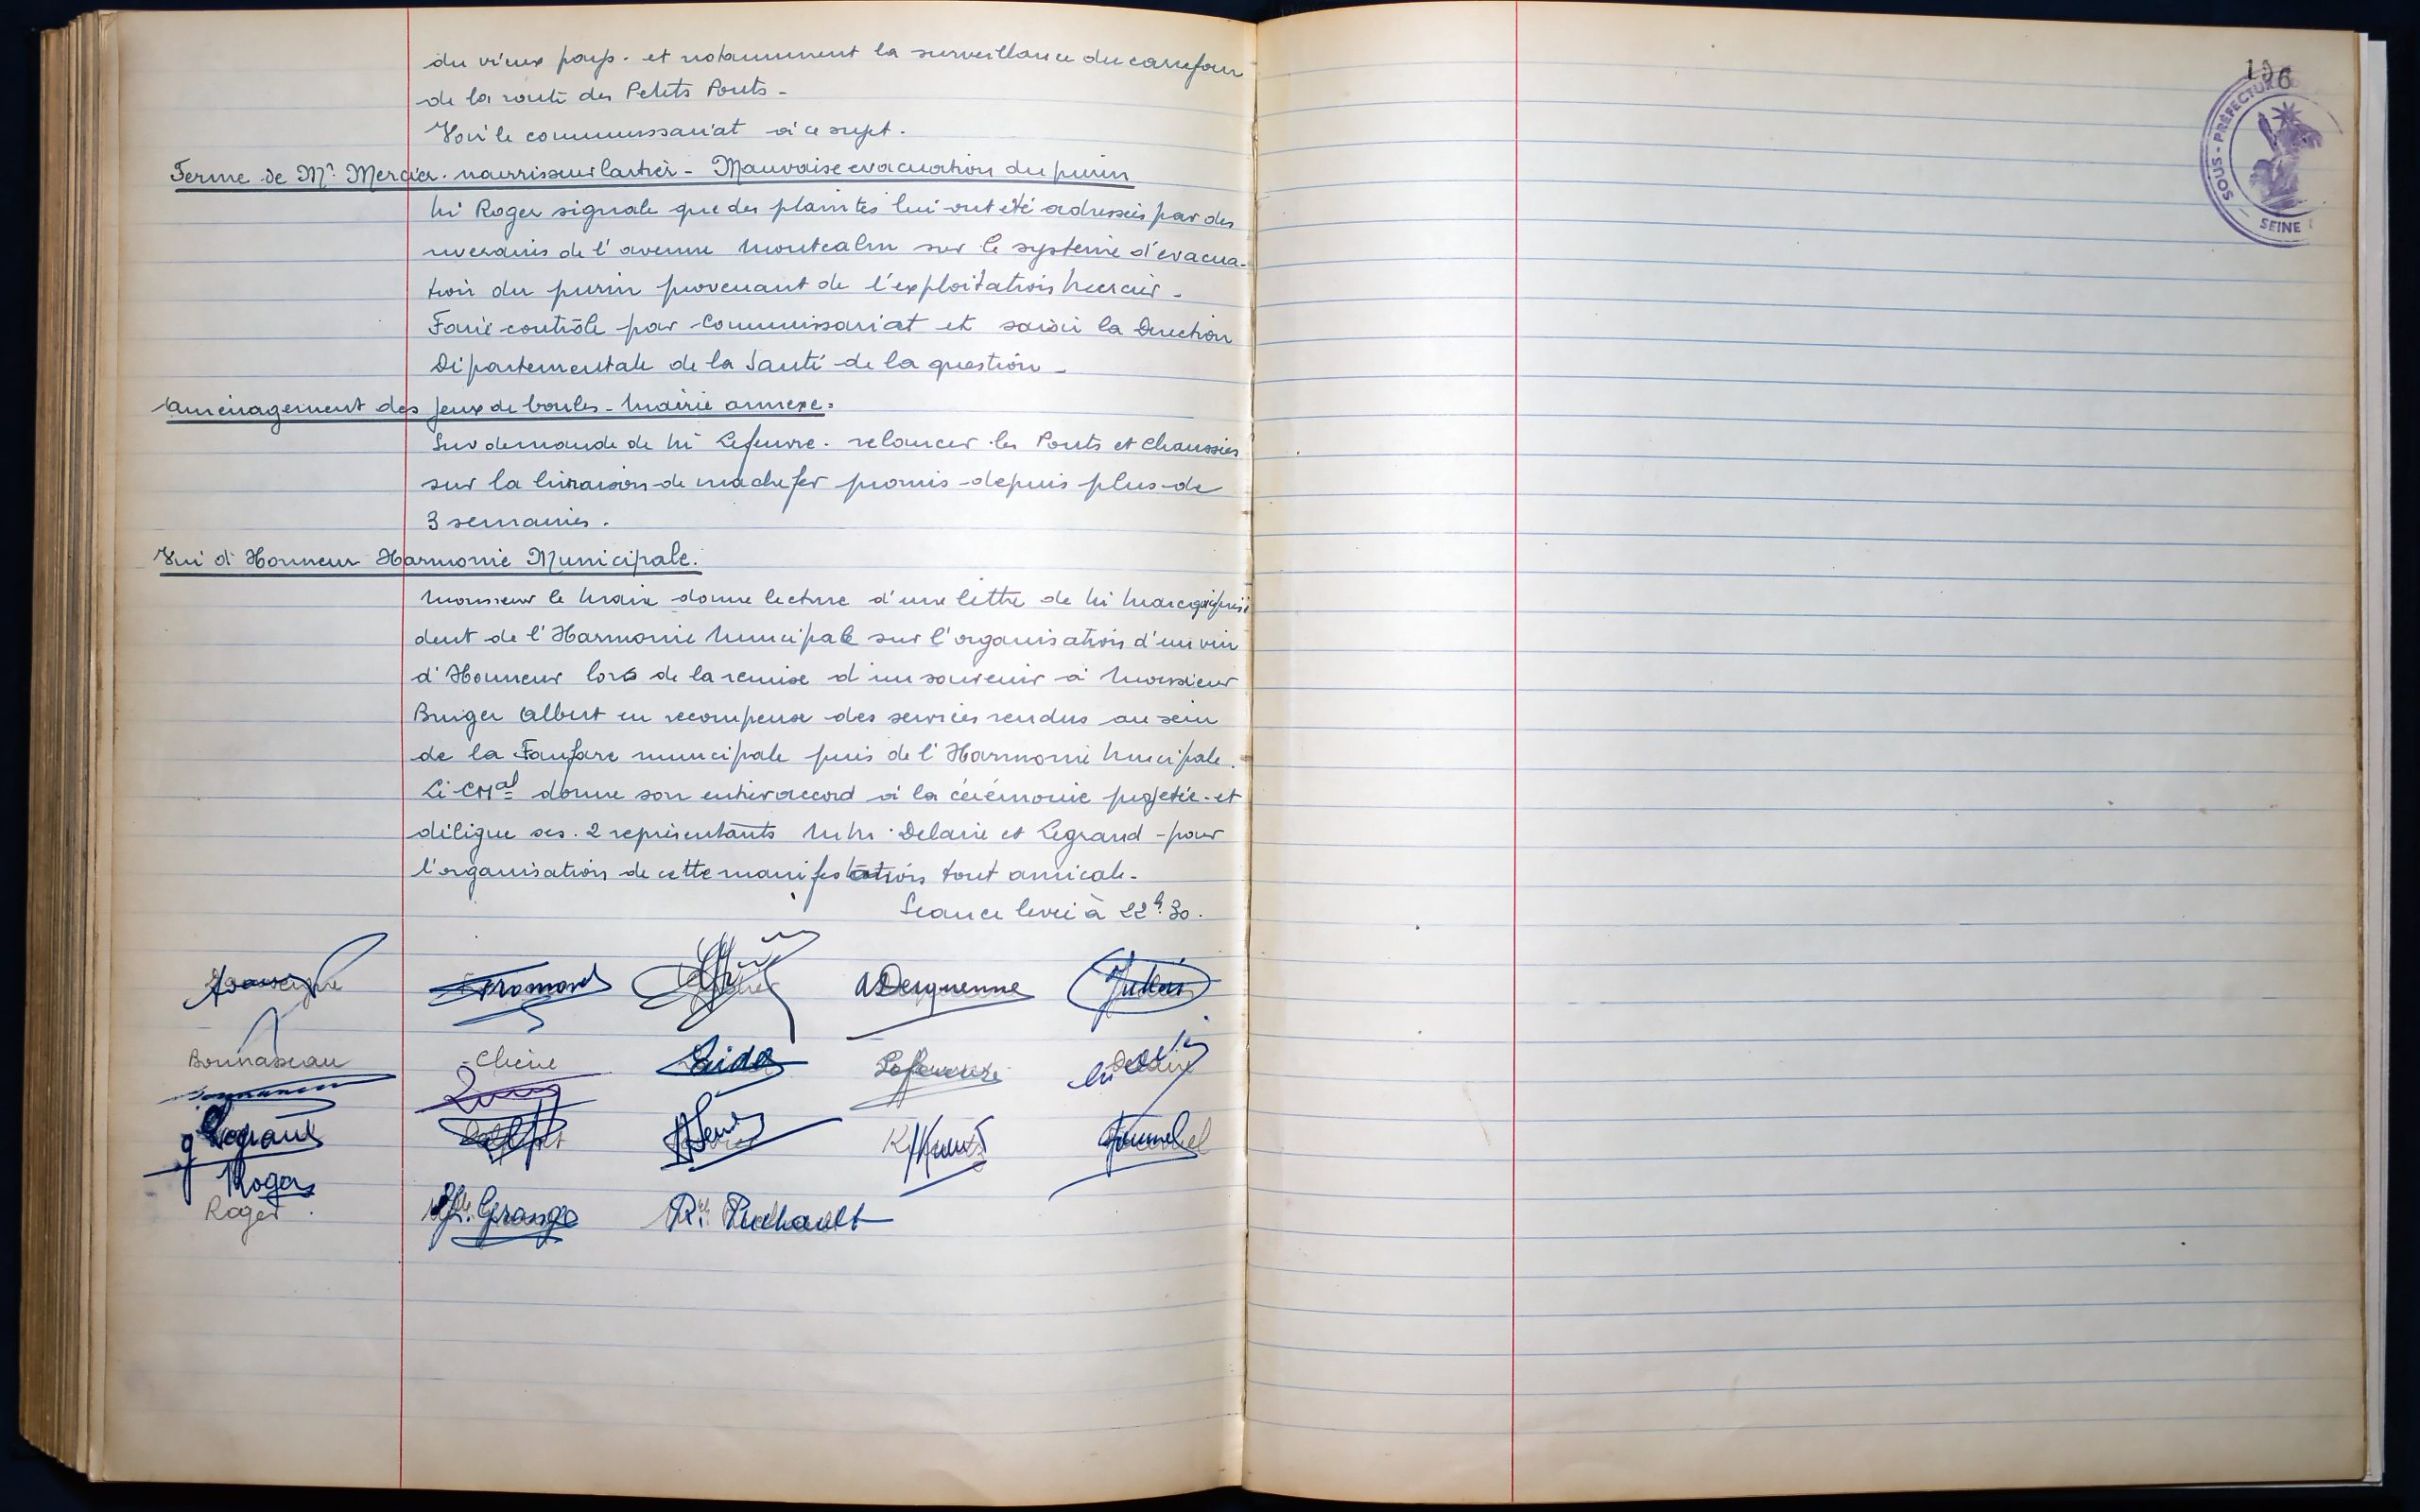 du vieux pays. et notamment la surveillance du carrefour
de la route des Petits Ponts -
Voir le commissariat à ce sujet.
Ferme de Mr Mercier. nourrisseur laitier - Mauvaise evacuation du purin
Mr Roger signale que des plaintes lui ont été adressées par des
riverains de l'avenue Montcalm sur le système d'évacua-
tion du purin provenant de l'exploitation Mercier -
Faire contrôle par Commissariat et saisir la Direction
Départementale de la Santé de la question -
Aménagement des Jeux de boules - Mairie annexe.
Sur demande de Mr Lefeuvre. relancer les Ponts et Chaussées
sur la livraison de machefer promis depuis plus de
3 semaines.
Vin d'Honneur Harmonie Municipale.
Monsieur le Maire donne lecture d'une lettre de Mr prési
dent de l'Harmonie Municipale sur l'organisation d'un vin
d'Honneur lors de la remise d'un souvenir à Monsieur
Albert en recompense des services rendus au sein
de la Fanfare municipale puis de l'Harmonie Municipale.
Le CMal donne son entier accord à la cérémonie projetée et
délègue ses 2 représentants MM. Delaire et Legrand - pour
l'organisation de cette manifestation tout amicale.
Séance levée à 22h30.
Fromond A Dequenne Julien
Bonnasseau Chéné Lefeuvre Delaire
g Legrand Kuntz Fournel
Roger
Roger Grange Ruchault
196
SOUS-PRÉFECTURE
SEINE